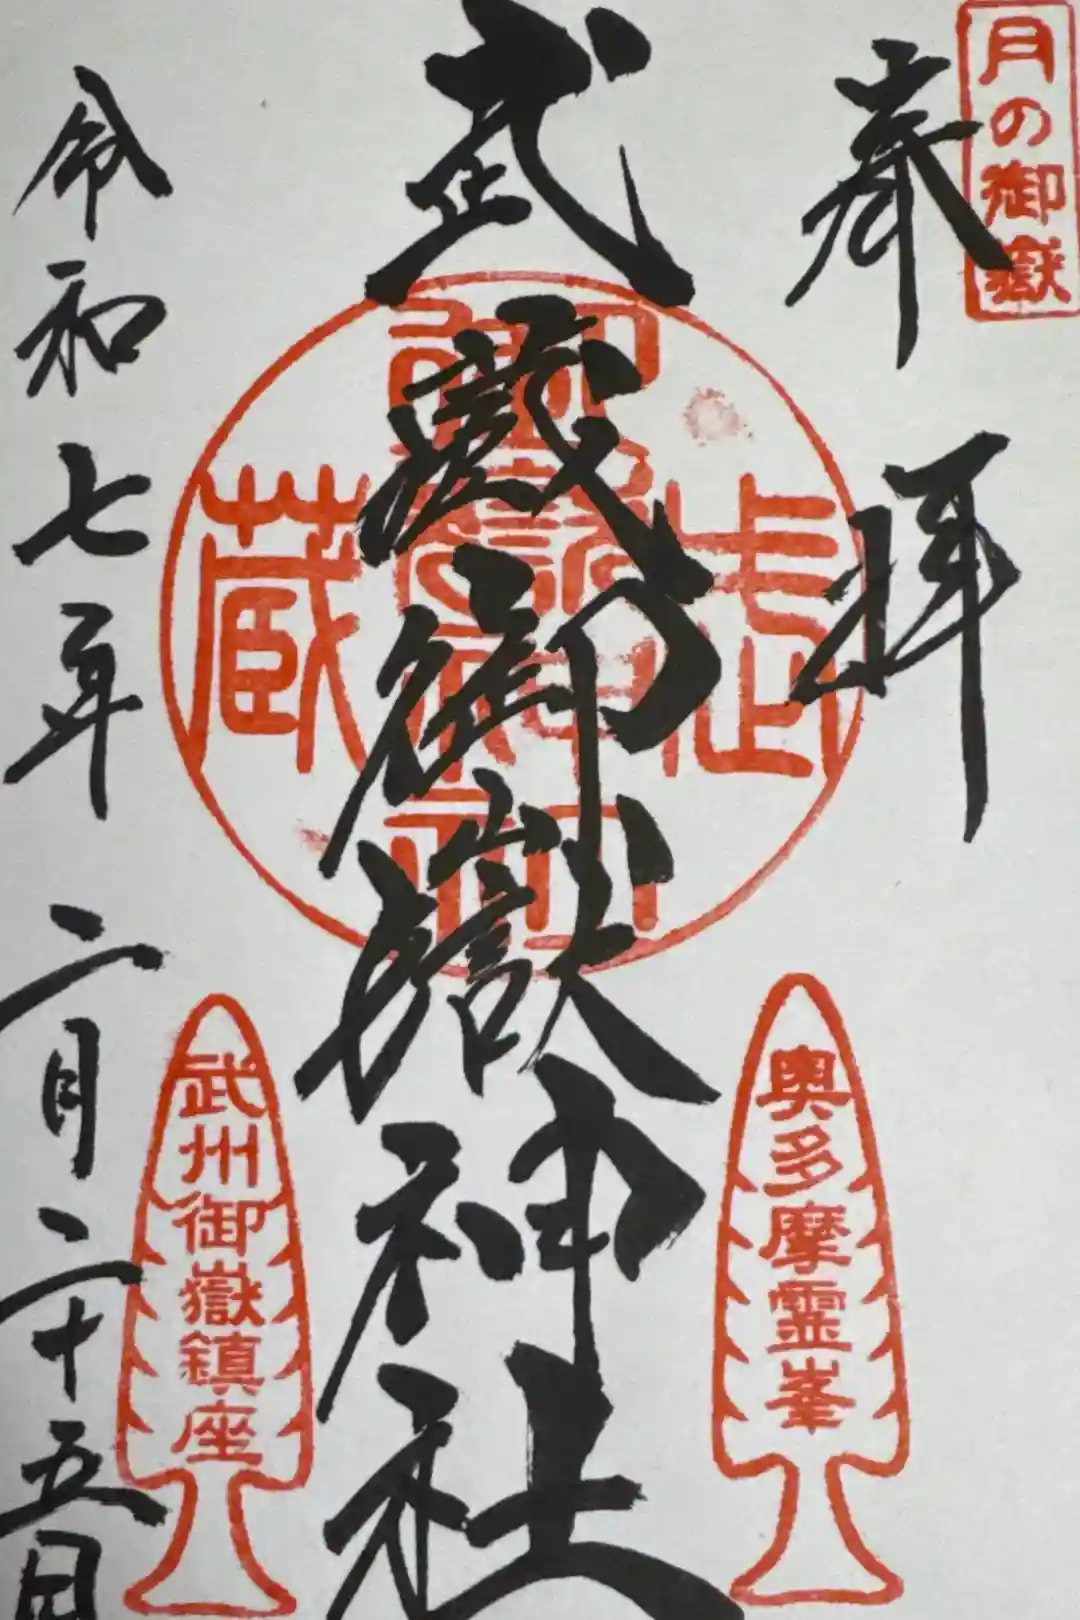 月の御嶽
奉拝
武蔵御嶽神社
武蔵
奥多摩霊峯
武州御嶽鎮座
令和七年二月二十五日